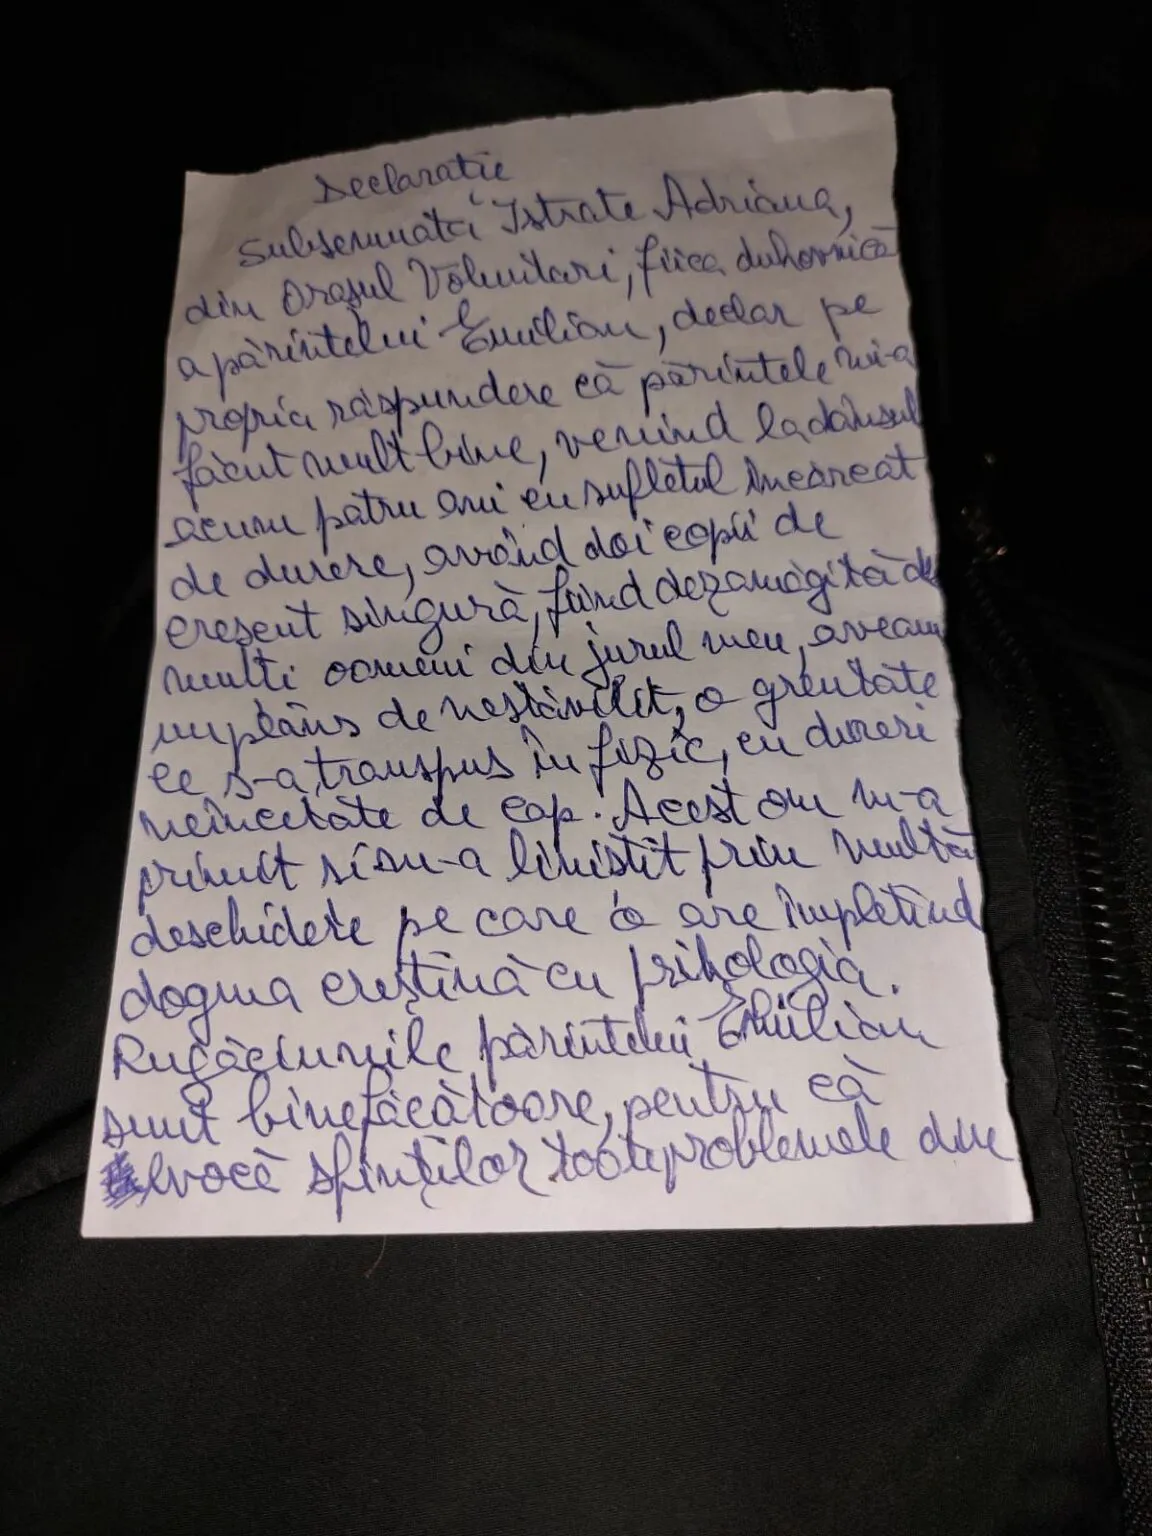 Declaratie
Subsemnata Istrate Adriana,
din Orașul Voluntari, fiica duhovnică
a părintelui Emilian, declar pe
propria răspundere că părintele mi-a
făcut mult bine, venind la dânsul
acum patru ani cu sufletul încărcat
de durere, având doi copii de
crescut singură, fiind dezamăgită de
multi oameni din jurul meu, aveam
un plâns de nestăvilit, o greutate
ce s-a transpus în fizic, cu dureri
neîncetate de cap. Acest om m-a
primit si m-a linistit prin multă
deschidere pe care o are împletind
dogma creștină cu psihologia.
Rugăciunile părintelui Emilian
sunt binefăcătoare, pentru că
evocă sfinților toate problemele din